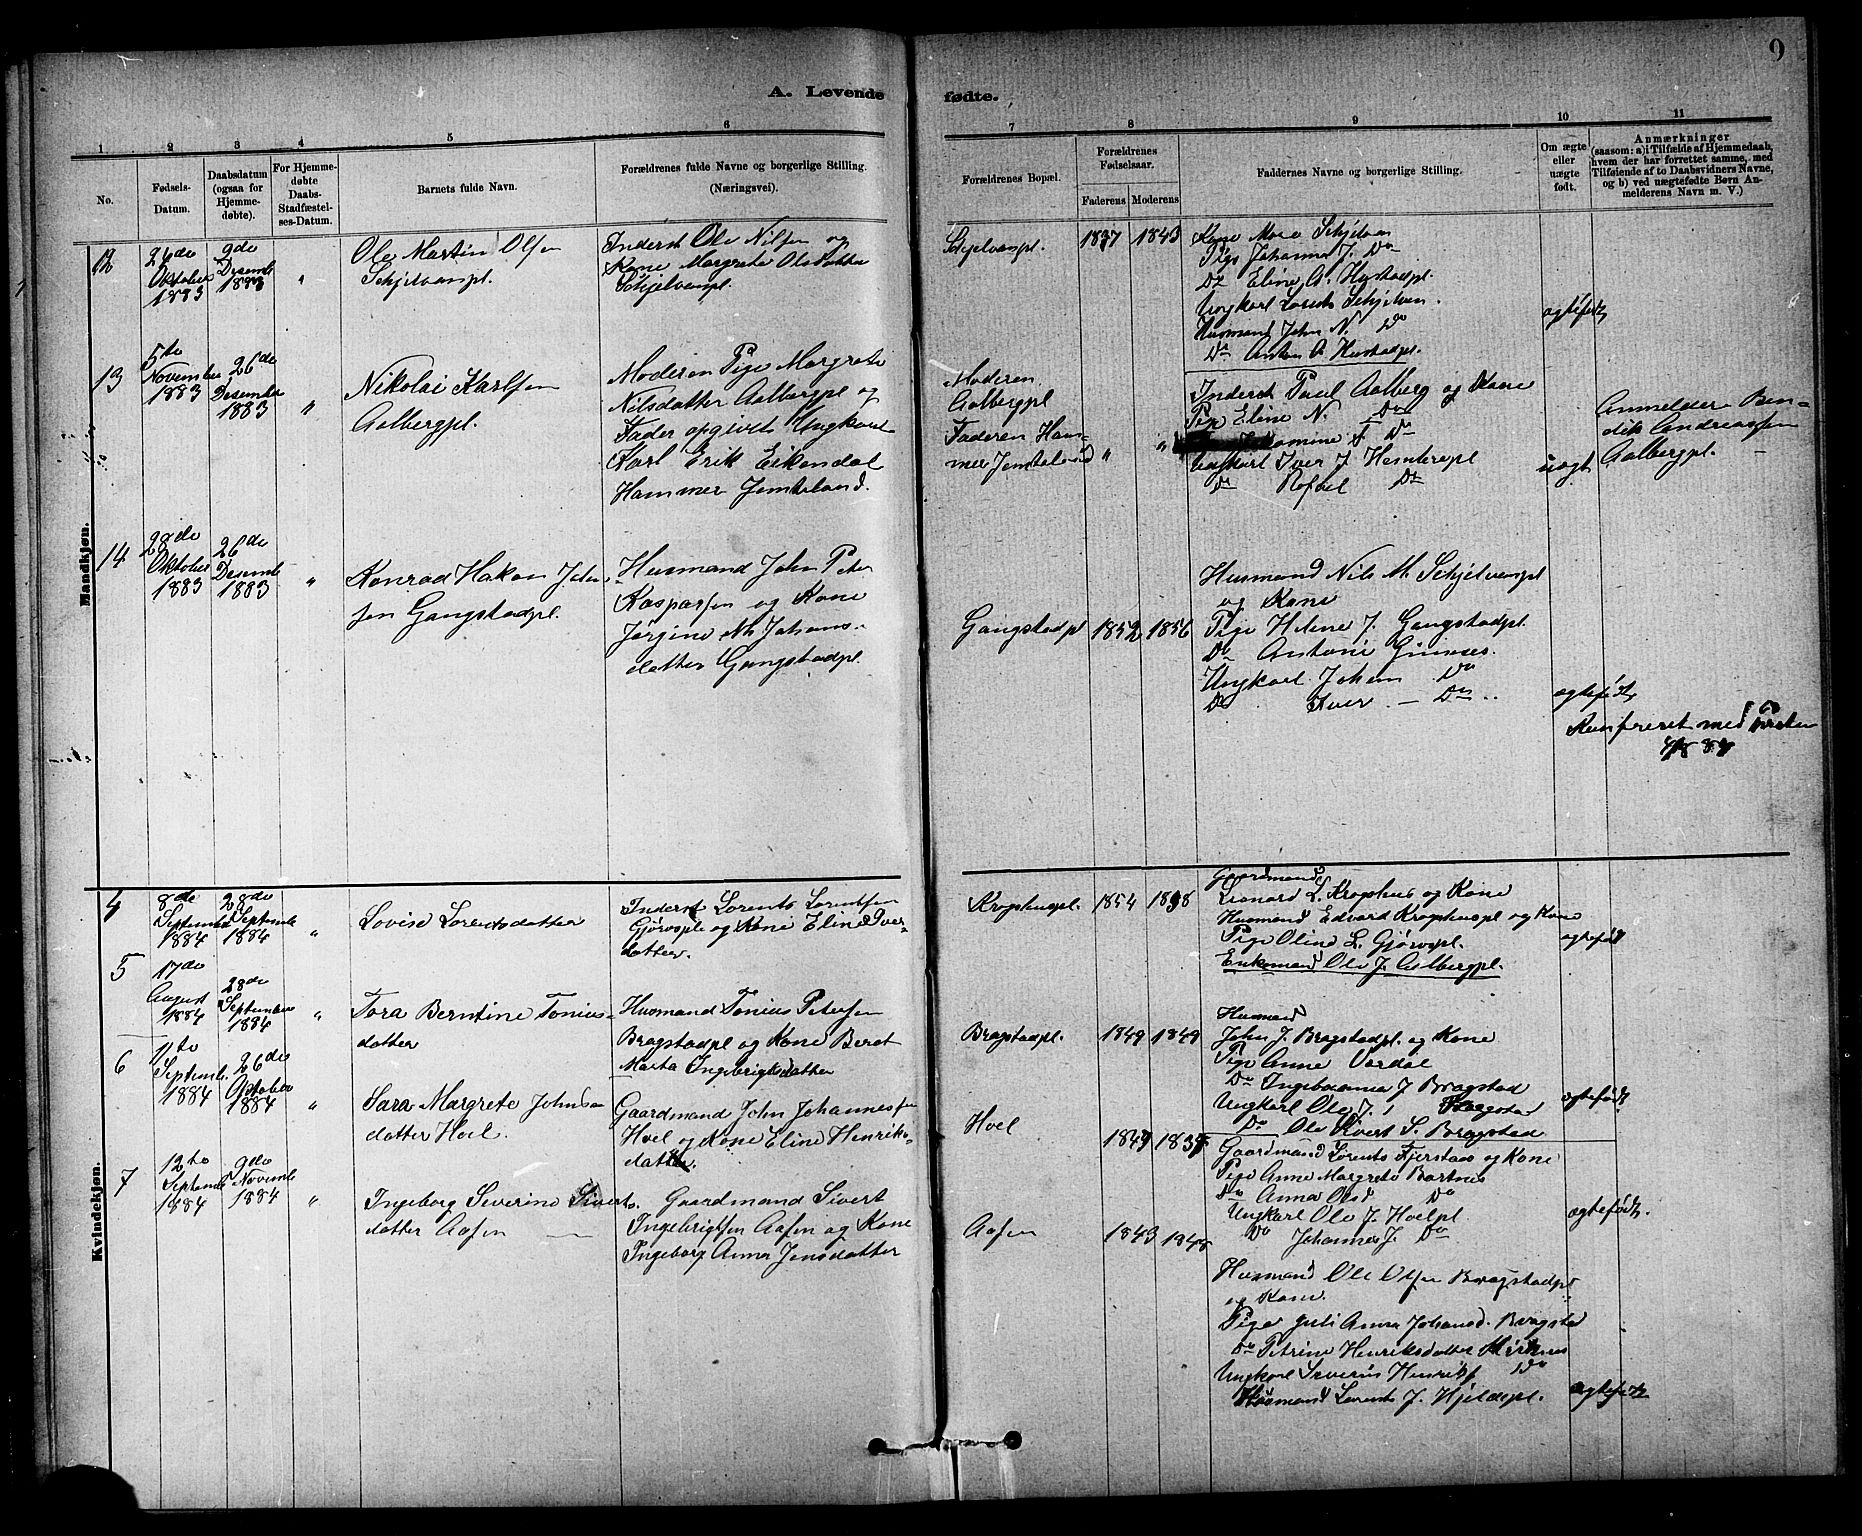 9
A. Levende fødte.
1 2 3 4 5 6 7 8 9 10 11
No.
Fødsels-Datum.
Daabsdatum (ogsaa for Hjemmedøbte).
For Hjemmedøbte Daabs-Stadfæstelses-Datum.
Barnets fulde Navn.
Forældrenes fulde Navne og borgerlige Stilling.
(Næringsvei).
Forældrenes Bopæl.
Forældrenes Fødselsaar.
Faderens Moderens
Faddernes Navne og borgerlige Stilling.
Om ægte eller uægte født.
Anmærkninger
(saasom: a) i Tilfælde af Hjemmedaab, hvem der har forrettet samme, med Tilføielse af to Daabsvidners Navne, og b) ved uægtefødte Børn Anmelderens Navn m. V.)
Mandkjøn.
12
26de Oktober 1883
9de Desemb 1883
"
Ole Martin Olsen
Schjelvanpl.
Inderst Ole Nilsen og
Kone Margrete Olsdatter
Schjelvanpl.
Schjelvanpl.
1837 1843
Kone Schjelvan
Pige Johanna J. Do
Do Eline A. Hustadpl.
Ungkarl Lorents Schjelvan.
Husmand John N. Do
Do Anton A. Hustadpl.
ægtefødt
13
5te November 1883
26de Desember 1883
"
Nikolai Karlsen
Aalbergpl.
Moderen Pige Margrete
Nilsdatter Aalbergpl og
Fader opgivet Ungkarl
Karl Erik Eikendal
Hammer Jemteland.
Moderen
Aalbergpl
Faderen Ham-
mer Jemteland " "
Inderst Paul Aalberg og Kone
Pige Eline N. Do
Do
Ungkarl Iver J. Hemterepl
Do Do
uægt
Anmelder Ben-
dik Andreassen
Aalbergpl.
14
28de Oktober 1883
26de Desemb 1883
"
Konrad Hakon John-
sen Gangstadpl.
Husmand John Peter
Kasparsen og Kone
Jørgine M. Johans-
datter Gangstadpl.
Gangstadpl 1852 1856
Husmand Nils M. Schjelvanpl
og Kone
Pige Helene J. Gangstadpl.
Do Antoni Gimnes.
Ungkarl Johan Do
Do Iver — Do
ægtefødt
Konfereret med
Kvindekjøn.
4
8de September 1884
28de Septemb 1884
"
Lovise Lorentsdatter
Inderst Lorents Lorentsen
Gjørvspl og Kone Eline Iver-
datter.
Krogshuspl. 1854 1838
Gaardmand
Leonard L. Krogshus og Kone
Husmand Edvard Krogshuspl og Kone
Pige Oline L. Gjørvspl.
Enkemand Ole J. Aalbergpl.
ægtefødt
5
17de August 1884
28de September 1884
"
Tora Berntine Tonius-
datter
Husmand Tonius Petersen
Bragstadpl og Kone Beret
Marta Ingebrigtsdatter
Bragstadpl. 1849 1849
Husmand
John J. Bragstadpl. og Kone
Pige Anne Vardal
Do Ingebaanna J Bragstad
Ungkarl Ole J. Bragstad
Do Ole Sivert S. Bragstad
ægtefødt
6
11te Septemb. 1884
26de Oktober 1884
"
Sara Margrete Johns
datter Hoel.
Gaardmand John Johannesen
Hoel og Kone Eline Henriks-
datter.
Hoel
Gaardmand Lorents Fjerstad og Kone
Pige Anne Margrete Bartnes
Do Anna Olsd Do
Ungkarl Ole J. Hoelpl.
Do Johannes J. Do
ægtefødt.
7
12te Septemb 1884
9de Novemb 1884
"
Ingeborg Severine Siverts-
datter Aasen —
Gaardmand Sivert
Ingebrigtsen Aasen og Kone
Ingeborg Anna Jensdatter
Aasen 1843 1848
Husmand Ole Olsen Bragstadpl
og Kone.
Pige Juli Anna Johansd. Bragstad
Do Petrine Henriksdatter
Ungkarl Severius Henriks Do
Husmand Lorents J. Hjeldepl.
ægtefødt